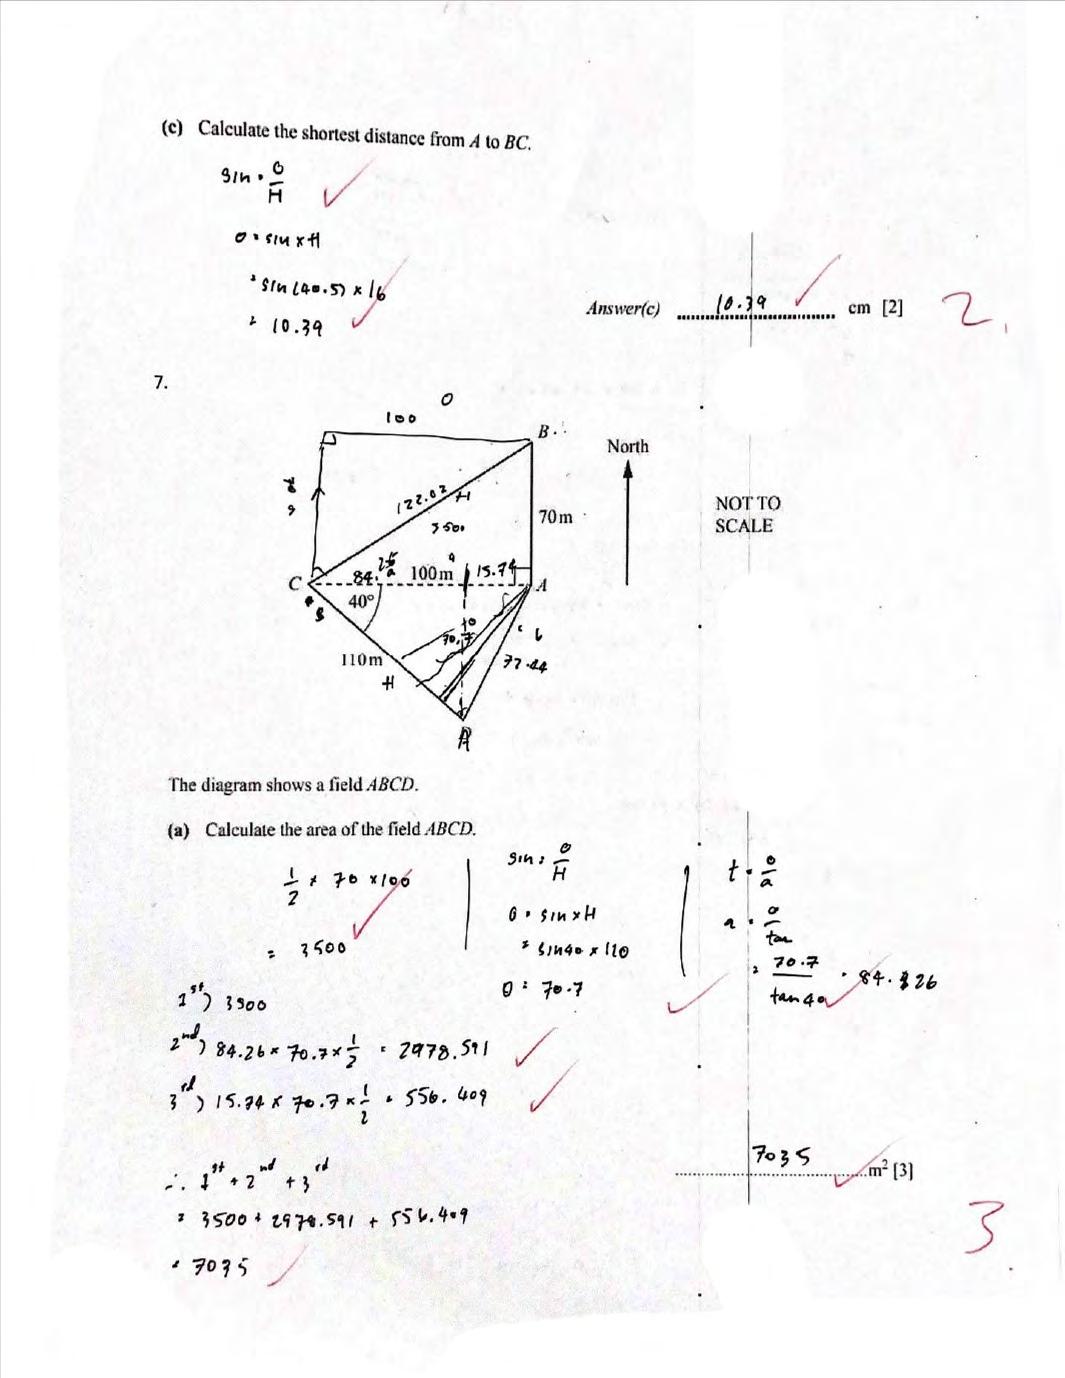 (c) Calculate the shortest distance from A to BC.
sin = O/H
O = sin x H
= sin (40.5) x 16
= 10.39
Answer(c) 10.39 cm [2]
2
7.
O
100
B
North
122.02
H
3500
70m
NOT TO
SCALE
C
84.26
100m
15.74
A
40°
70.7
110m
H
77.44
The diagram shows a field ABCD.
(a) Calculate the area of the field ABCD.
1/2 x 70 x 100
= 3500
sin = O/H
O = sin x H
= sin40 x 110
O = 70.7
t = o/a
a = o/tan
= 70.7/tan 40 = 84.26
1st) 3500
2nd) 84.26 x 70.7 x 1/2 = 2978.591
3rd) 15.74 x 70.7 x 1/2 = 556.409
∴ 1st + 2nd + 3rd
= 3500 + 2978.591 + 556.409
= 7035
7035 m² [3]
3